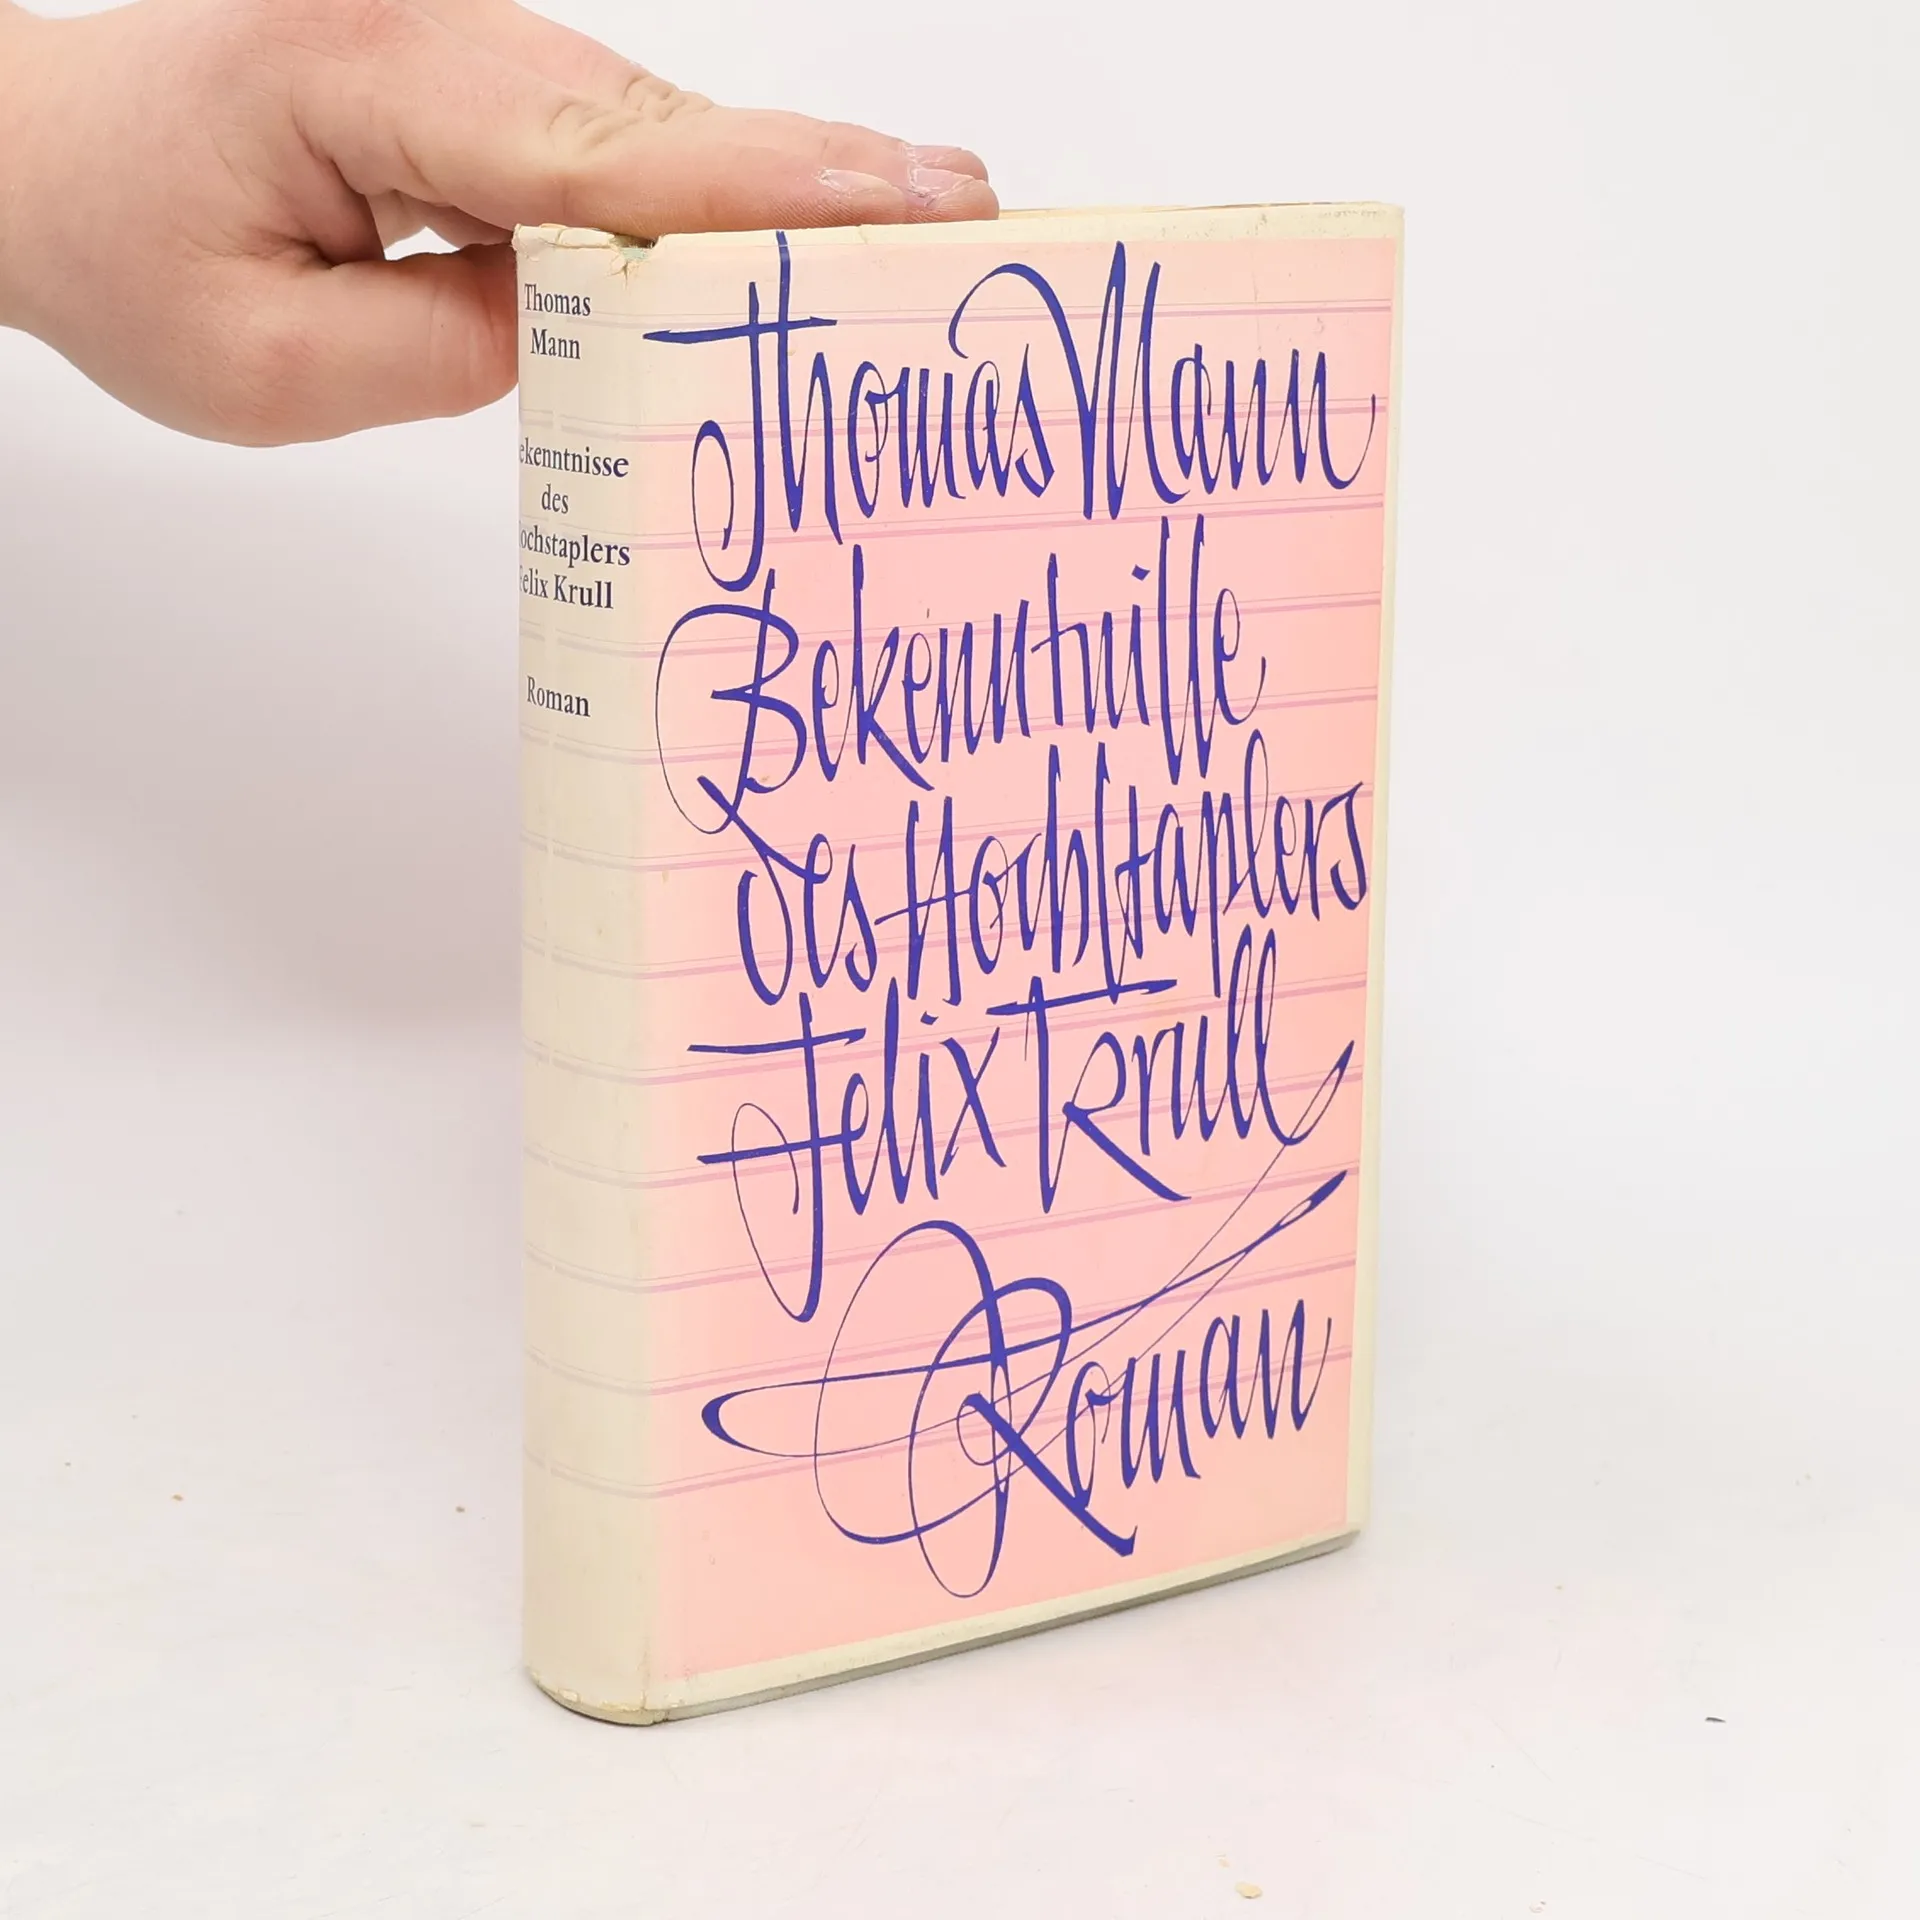 Thomas
Mann
ekenntnisse
des
ochstaplers
Felix Krull
Roman
Thomas Mann
Bekenntniſſe
des Hochſtaplers
Felix Krull
Roman